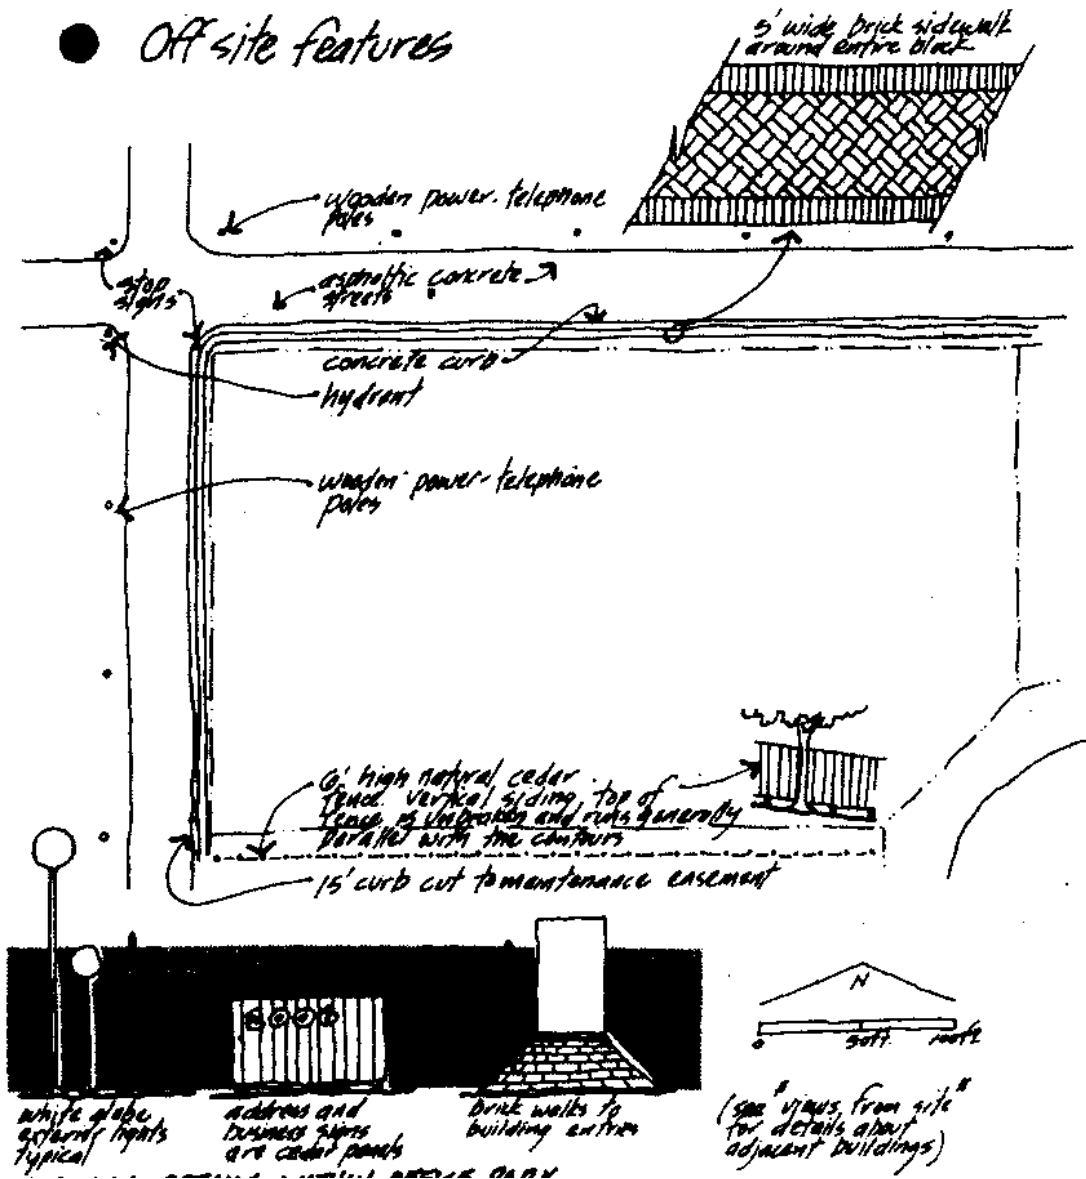 Off site features
5' wide brick sidewalk
around entire block
wooden power-telephone
poles
stop
signs
asphaltic concrete
streets
concrete curb
hydrant
wooden power-telephone
poles
6' high natural cedar
fence. Vertical siding, top of
fence is unbroken and runs generally
parallel with the contours
15' curb cut to maintenance easement
N
0
50ft.
100ft
white globe
exterior lights
typical
address and
business signs
are cedar panels
brick walks to
building entries
(see "views from site"
for details about
adjacent buildings)
OFFICE PARK